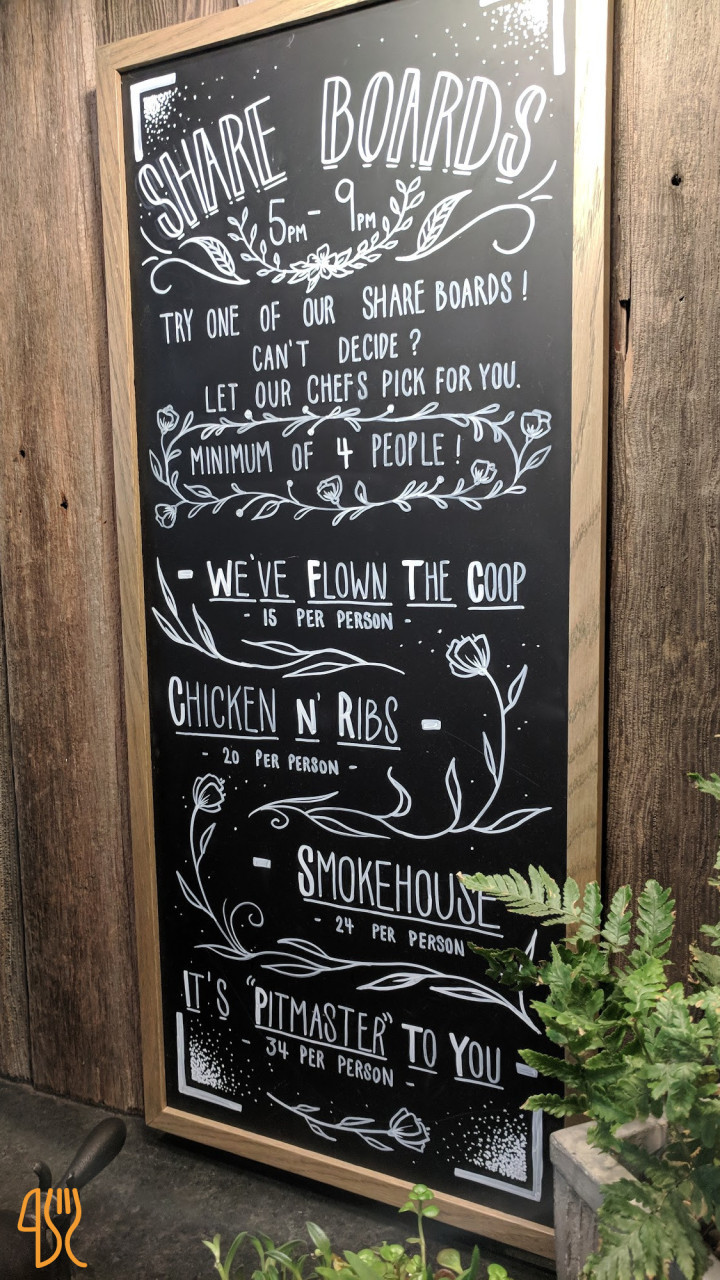 SHARE BOARDS
5PM - 9PM
TRY ONE OF OUR SHARE BOARDS!
CAN'T DECIDE?
LET OUR CHEFS PICK FOR YOU.
MINIMUM OF 4 PEOPLE!
- WE'VE FLOWN THE COOP
- 15 PER PERSON -
CHICKEN N' RIBS -
- 20 PER PERSON -
- SMOKEHOUSE
- 24 PER PERSON
IT'S "PITMASTER" TO YOU -
- 34 PER PERSON -